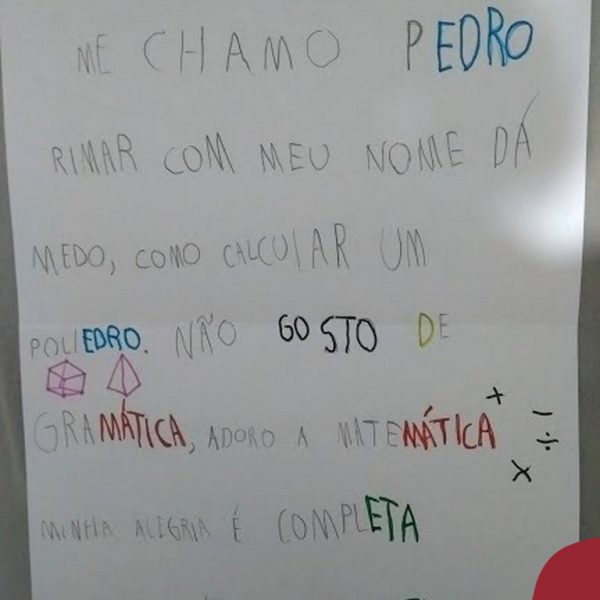 ME CHAMO PEDRO
RIMAR COM MEU NOME DÁ
MEDO, COMO CALCULAR UM
POLIEDRO. NÃO GOSTO DE
GRAMÁTICA, ADORO A MATEMÁTICA + - ÷ ×
MINHA ALEGRIA É COMPLETA